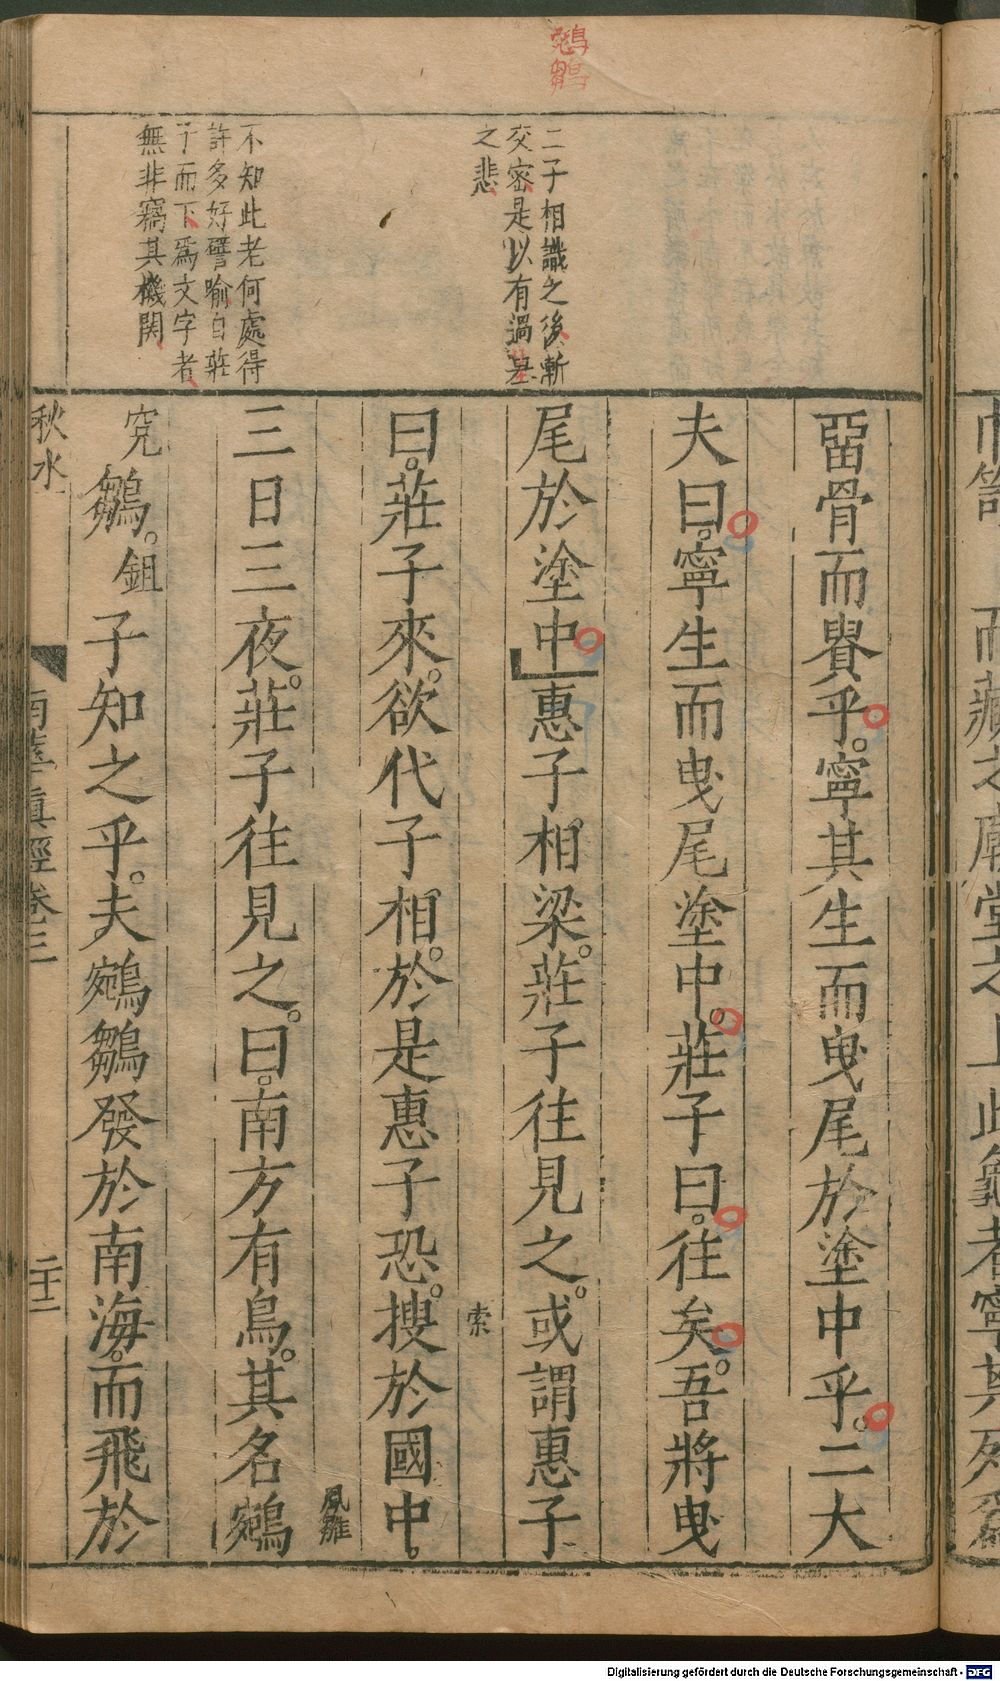 鵷鶵
二子相識之後漸
交密是以有過墓
之悲
不知此老何處得
許多好譬喻自莊
子而下爲文字者
無非竊其機関
畱骨而貴乎。寧其生而曳尾於塗中乎。二大
夫曰。寧生而曳尾塗中。莊子曰。往矣。吾將曳
尾於塗中。惠子相梁。莊子往見之。或謂惠子
索
曰。莊子來。欲代子相。於是惠子恐。搜於國中。
三日三夜。莊子往見之。曰。南方有鳥。其名鵷
鳳雛
鶵。子知之乎。夫鵷鶵發於南海。而飛於
鉏
秋水
南華真經卷三
二十二
而藏之廟堂之上此龜者寧其死爲
Digitalisierung gefördert durch die Deutsche Forschungsgemeinschaft - DFG